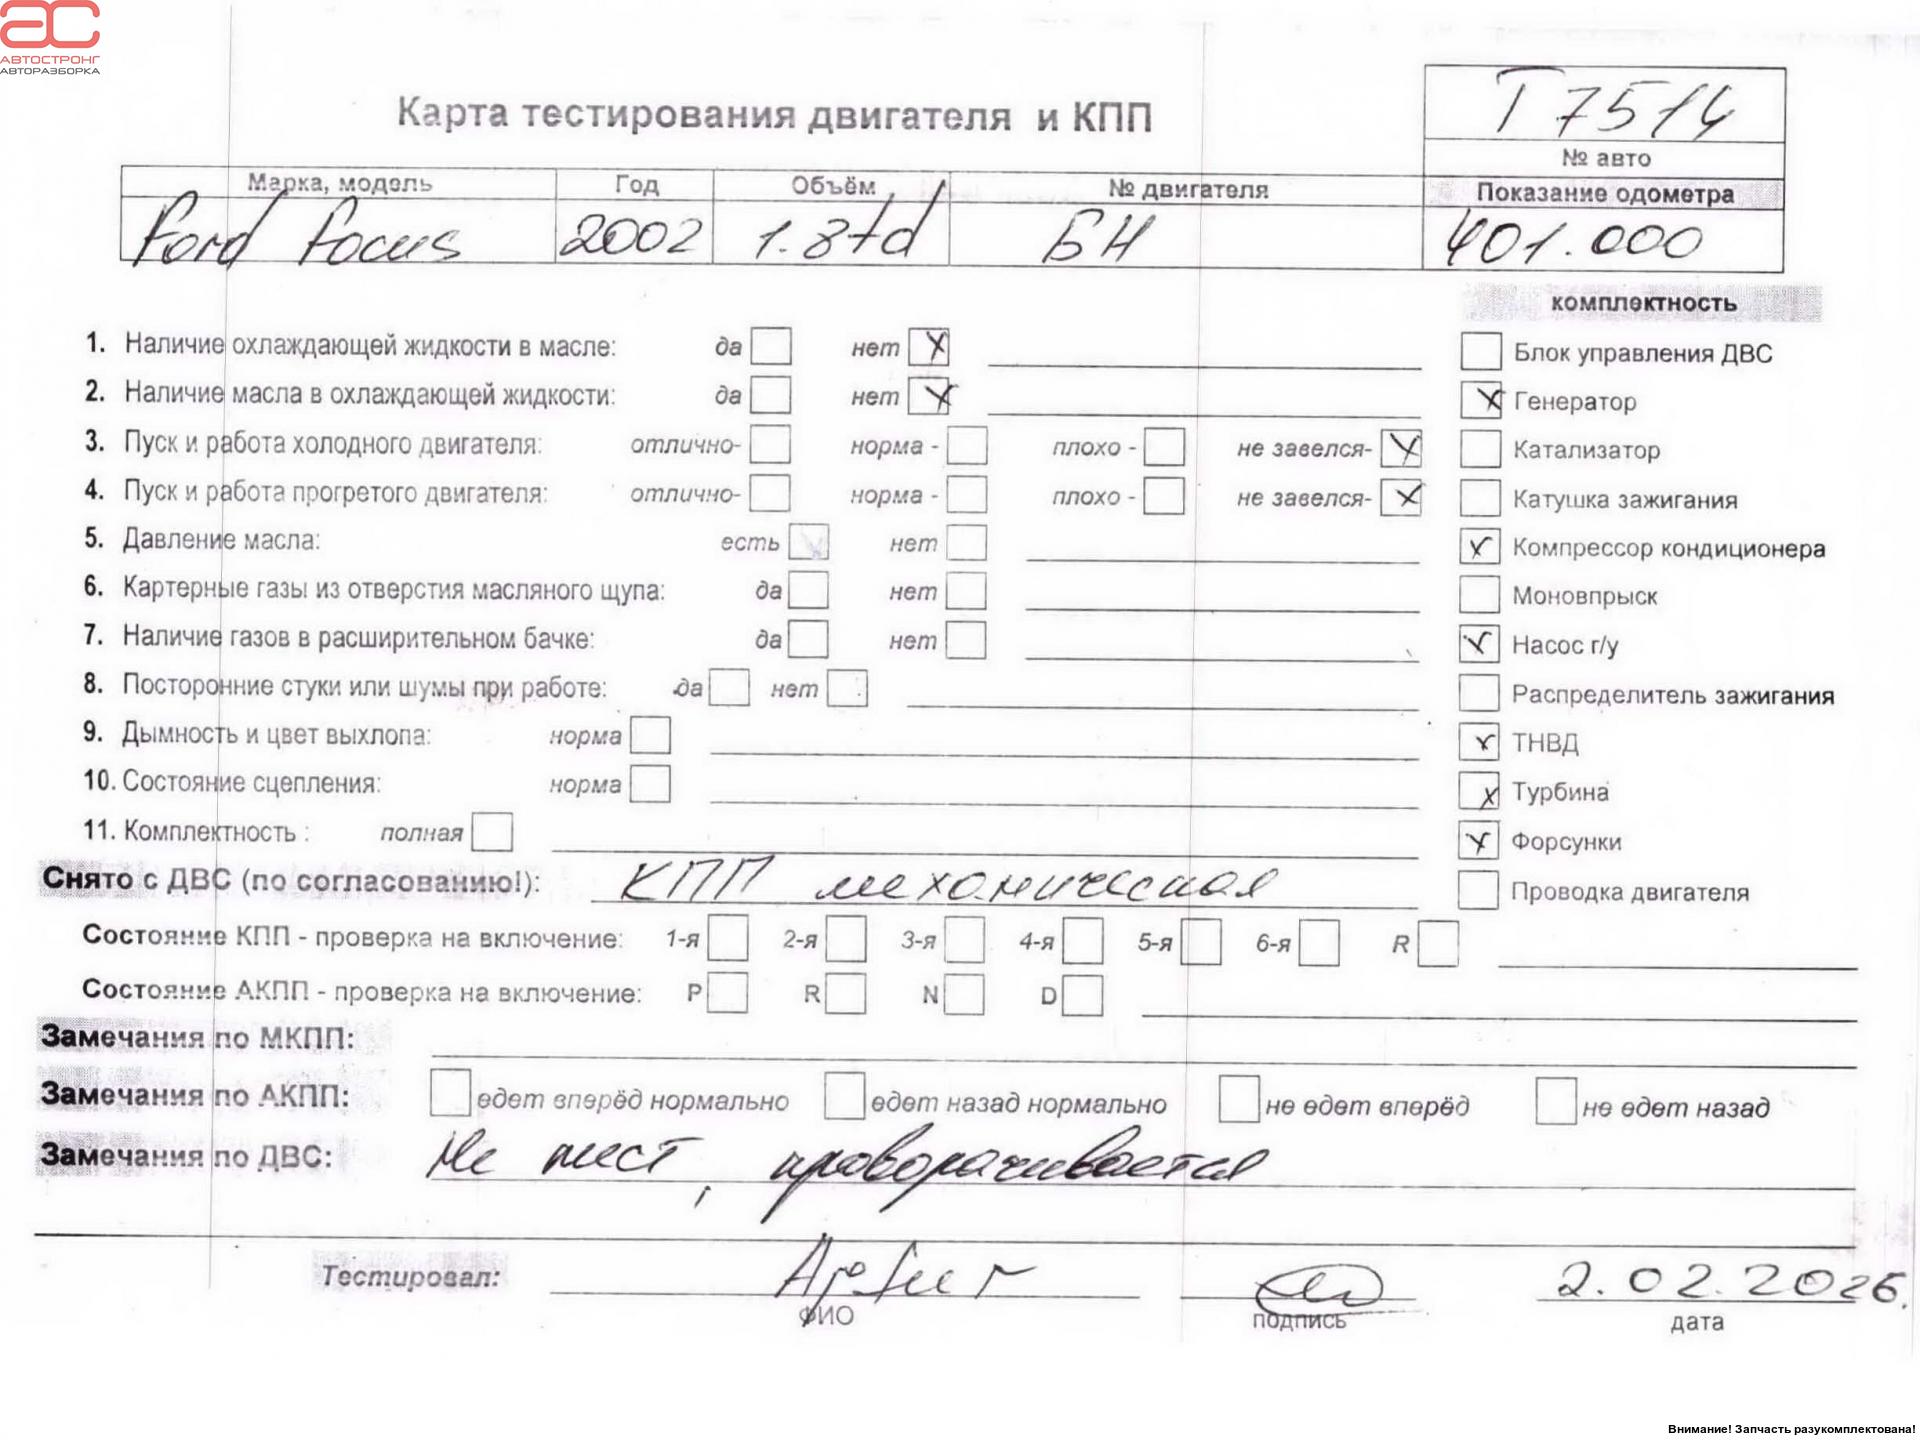 АС
АВТОСТРОНГ
АВТОРАЗБОРКА
Карта тестирования двигателя и КПП
Т 7514
№ авто
Марка, модель Год Объём № двигателя Показание одометра
Ford Focus 2002 1.8td БН 401.000
комплектность
1. Наличие охлаждающей жидкости в масле: да нет X
Блок управления ДВС
2. Наличие масла в охлаждающей жидкости: да нет X
X Генератор
3. Пуск и работа холодного двигателя: отлично- норма - плохо - не завелся- X
Катализатор
4. Пуск и работа прогретого двигателя: отлично- норма - плохо - не завелся- X
Катушка зажигания
5. Давление масла: есть нет
X Компрессор кондиционера
6. Картерные газы из отверстия масляного щупа: да нет
Моновпрыск
7. Наличие газов в расширительном бачке: да нет
X Насос г/у
8. Посторонние стуки или шумы при работе: да нет
Распределитель зажигания
9. Дымность и цвет выхлопа: норма
X ТНВД
10. Состояние сцепления: норма
X Турбина
11. Комплектность : полная
X Форсунки
Снято с ДВС (по согласованию!): КПП механическая
Проводка двигателя
Состояние КПП - проверка на включение: 1-я 2-я 3-я 4-я 5-я 6-я R
Состояние АКПП - проверка на включение: P R N D
Замечания по МКПП:
Замечания по АКПП: едет вперёд нормально едет назад нормально не едет вперёд не едет назад
Замечания по ДВС: Не тест, проворачивается
Тестировал: 2.02.2026.
ФИО подпись дата
Внимание! Запчасть разукомплектована!